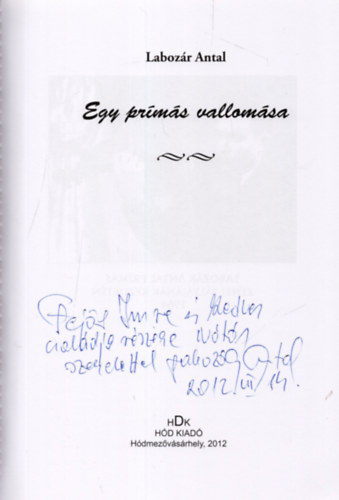 Labozár Antal
Egy prímás vallomása
Fejős Imre és Kedves
családja részére
szeretettel Labozár Antal
2012. III/14.
HDK
HÓD KIADÓ
Hódmezővásárhely, 2012